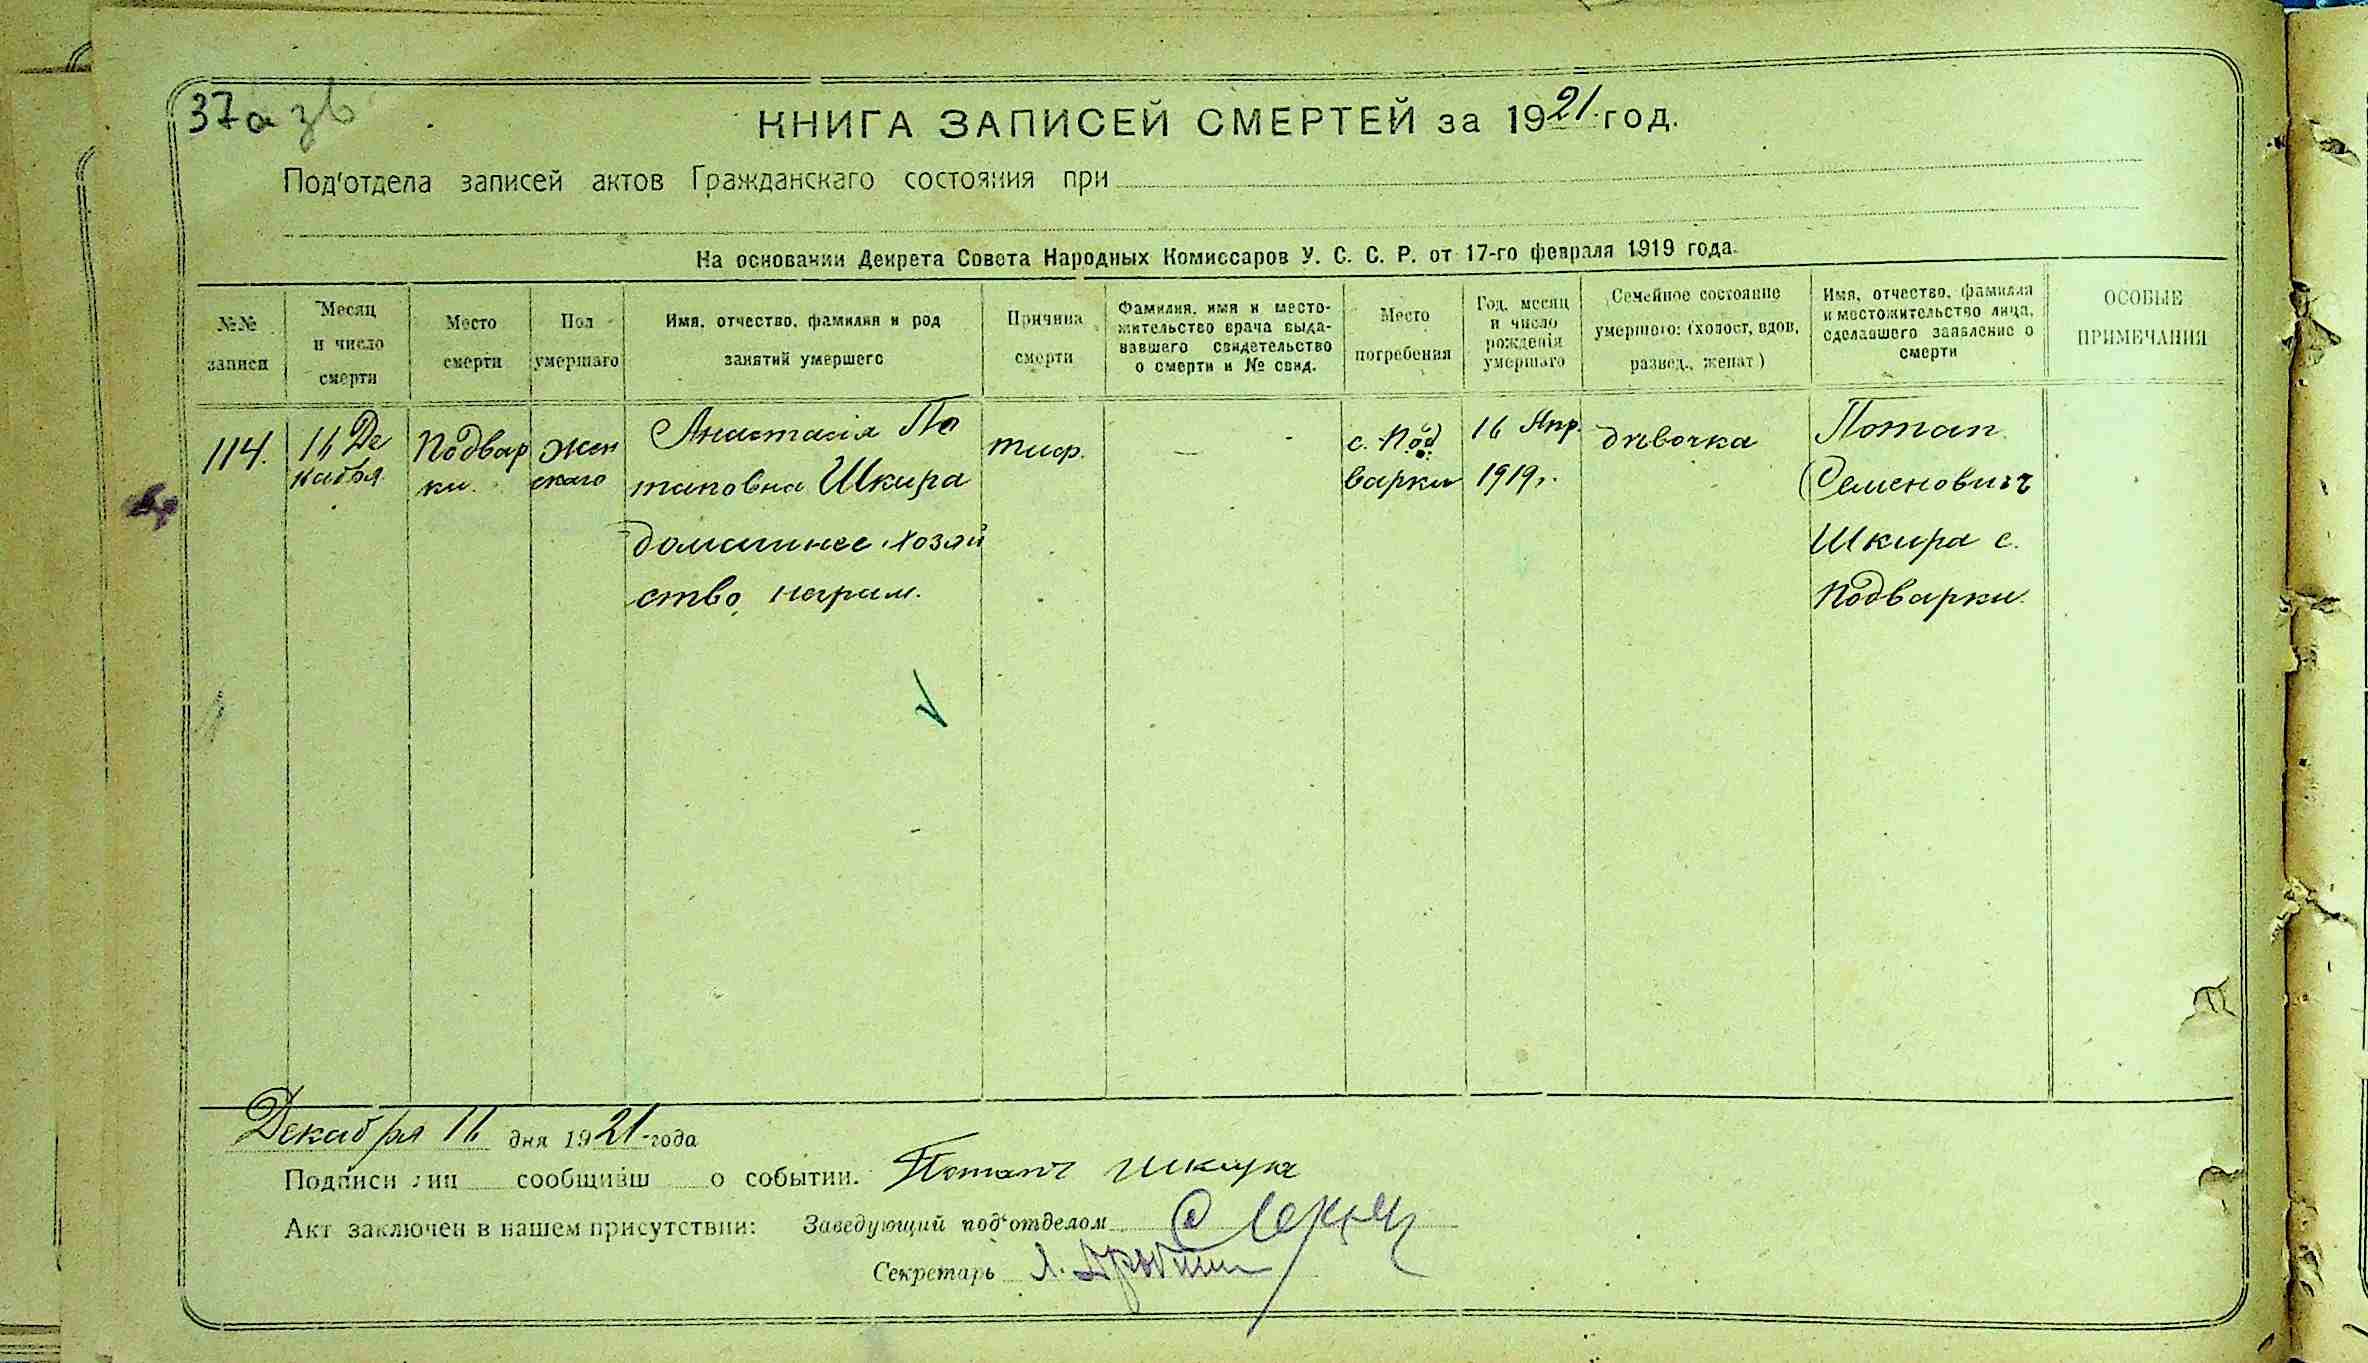 37а зв
КНИГА ЗАПИСЕЙ СМЕРТЕЙ за 1921 год.
Под'отдела записей актов Гражданскаго состояния при
На основании Декрета Совета Народных Комиссаров У. С. С. Р. от 17-го февраля 1919 года.
№№ записи
Месяц и число смерти
Место смерти
Пол умершаго
Имя, отчество, фамилия и род занятий умершего
Причина смерти
Фамилия, имя и место-
жительство врача выда-
вавшего свидетельство
о смерти и № свид.
Место погребения
Год, месяц
и число
рождения
умершаго
Семейное состояние
умершого: (холост, вдов,
развед., женат)
Имя, отчество, фамилия
и местожительство лица,
сделавшего заявление о
смерти
ОСОБЫЕ
ПРИМЕЧАНИЯ
114.
16 Де
кабря
Подвар
ки.
жен
скаго
Анастасія По
таповна Шкира
домашнее хозяй
ство, неграм.
тиф.
—
с. Под
варки
16 Апр.
1919 г.
дѣвочка
Потап
Семенович
Шкира с.
Подварки.
Декабря 16 дня 1921 года
Подписи лиц сообщивш о событии. Потапъ Шкира
Акт заключен в нашем присутствии: Заведующий под'отделом
Секретарь